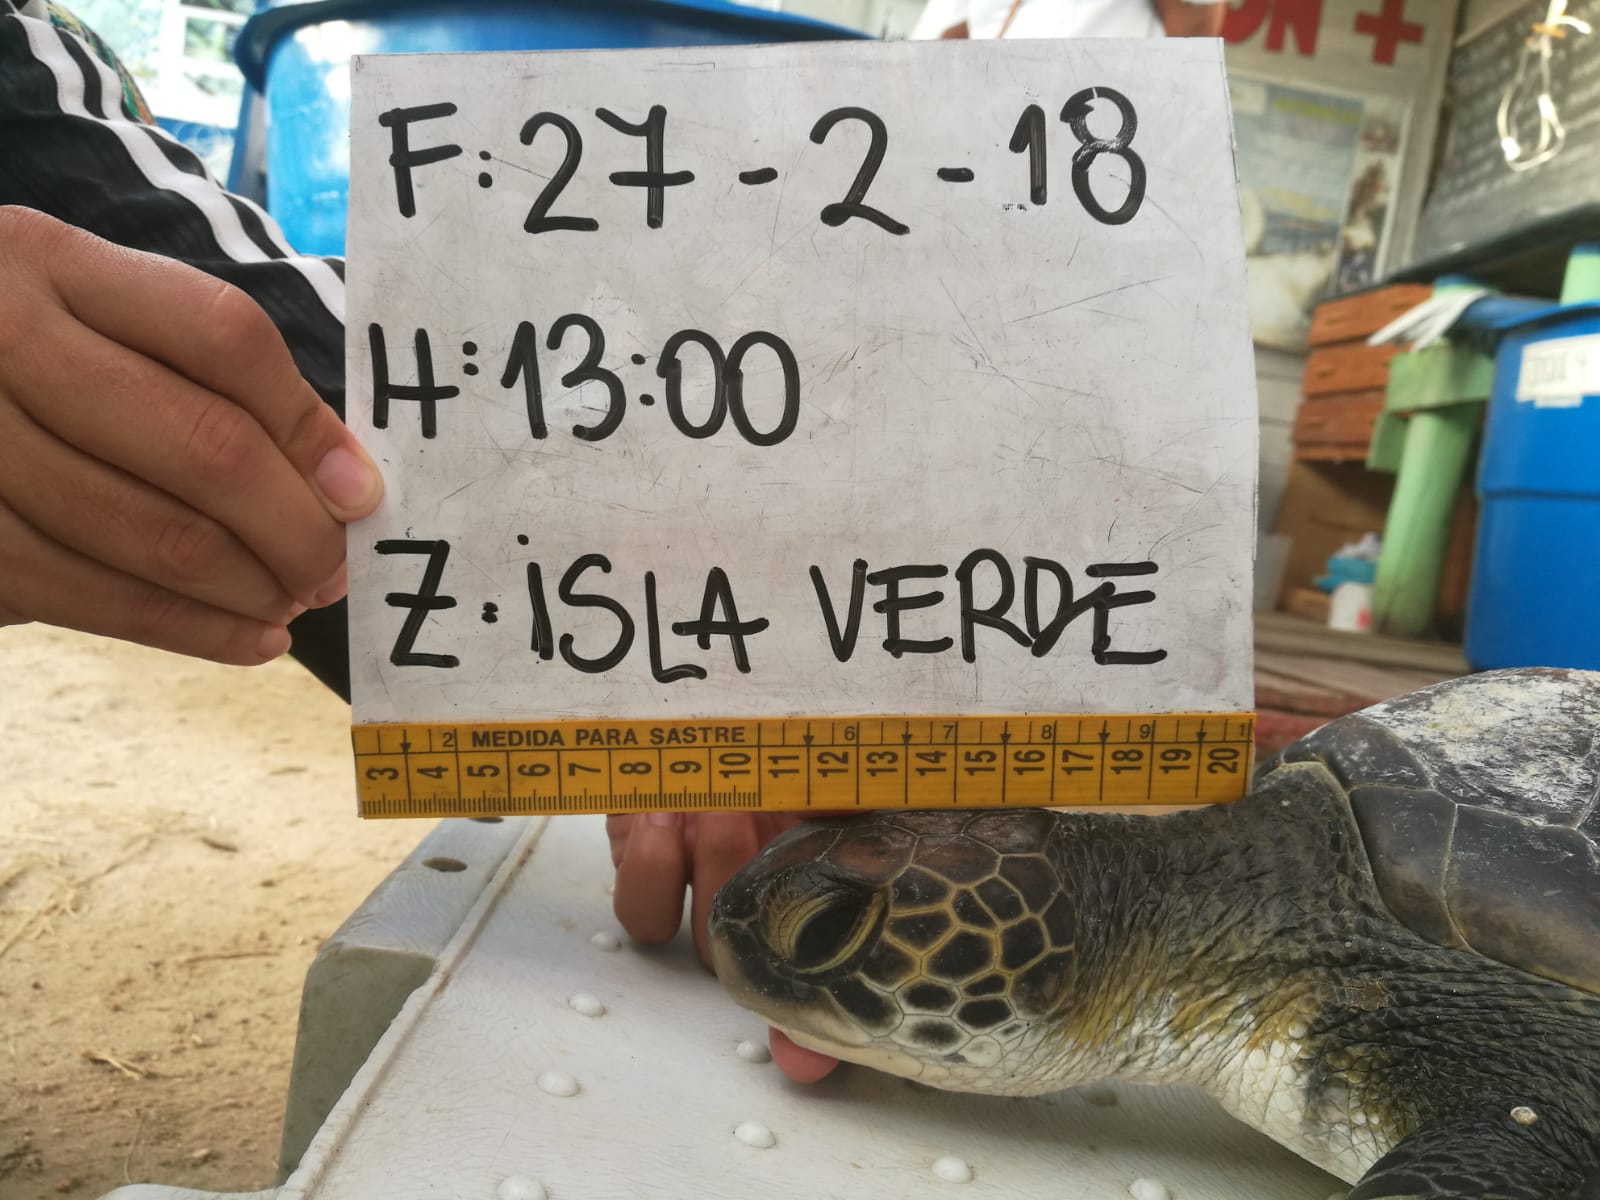 ON +
F: 27 - 2 - 18
H: 13:00
Z: ISLA VERDE
2 MEDIDA PARA SASTRE 6 7 8 9 1
3 4 5 6 7 8 9 10 11 12 13 14 15 16 17 18 19 20